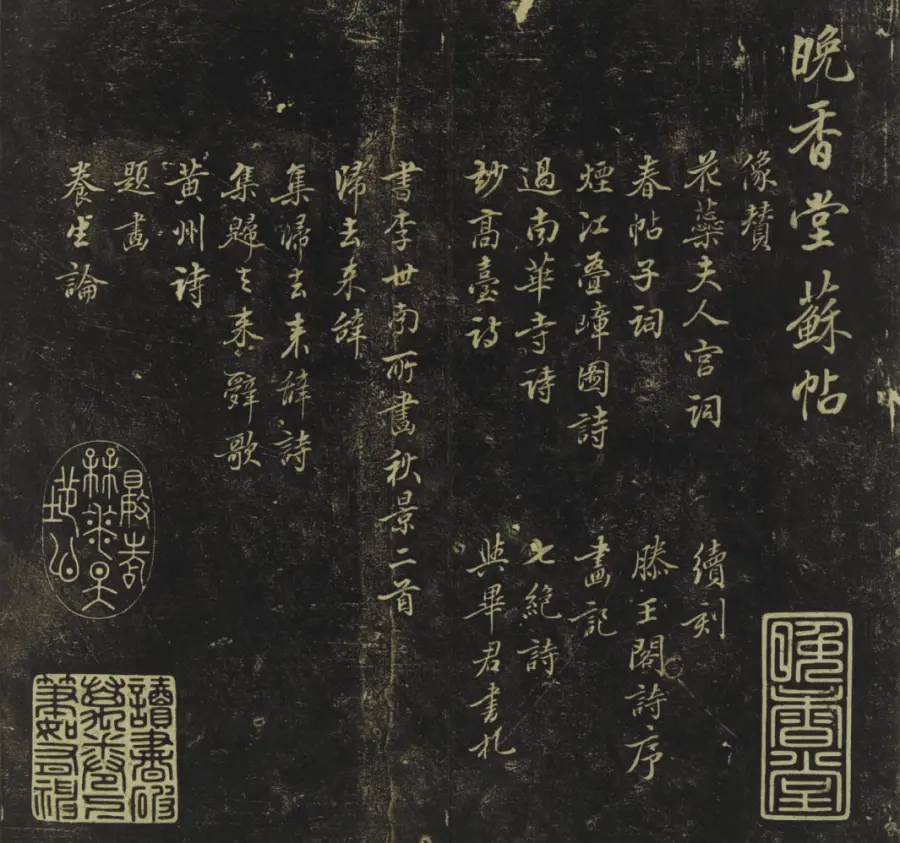 晚香堂蘇帖
像贊
花蘂夫人宮詞
春帖子詞
煙江疊嶂圖詩
過南華寺詩
妙高臺詩
書李世南所畫秋景二首
歸去来辭
集歸去来辭詩
集歸去来辭歌
黄州詩
題畫
養生論
續刻
滕王閣詩序
畫記
七絶詩
與畢君書札
晚香堂